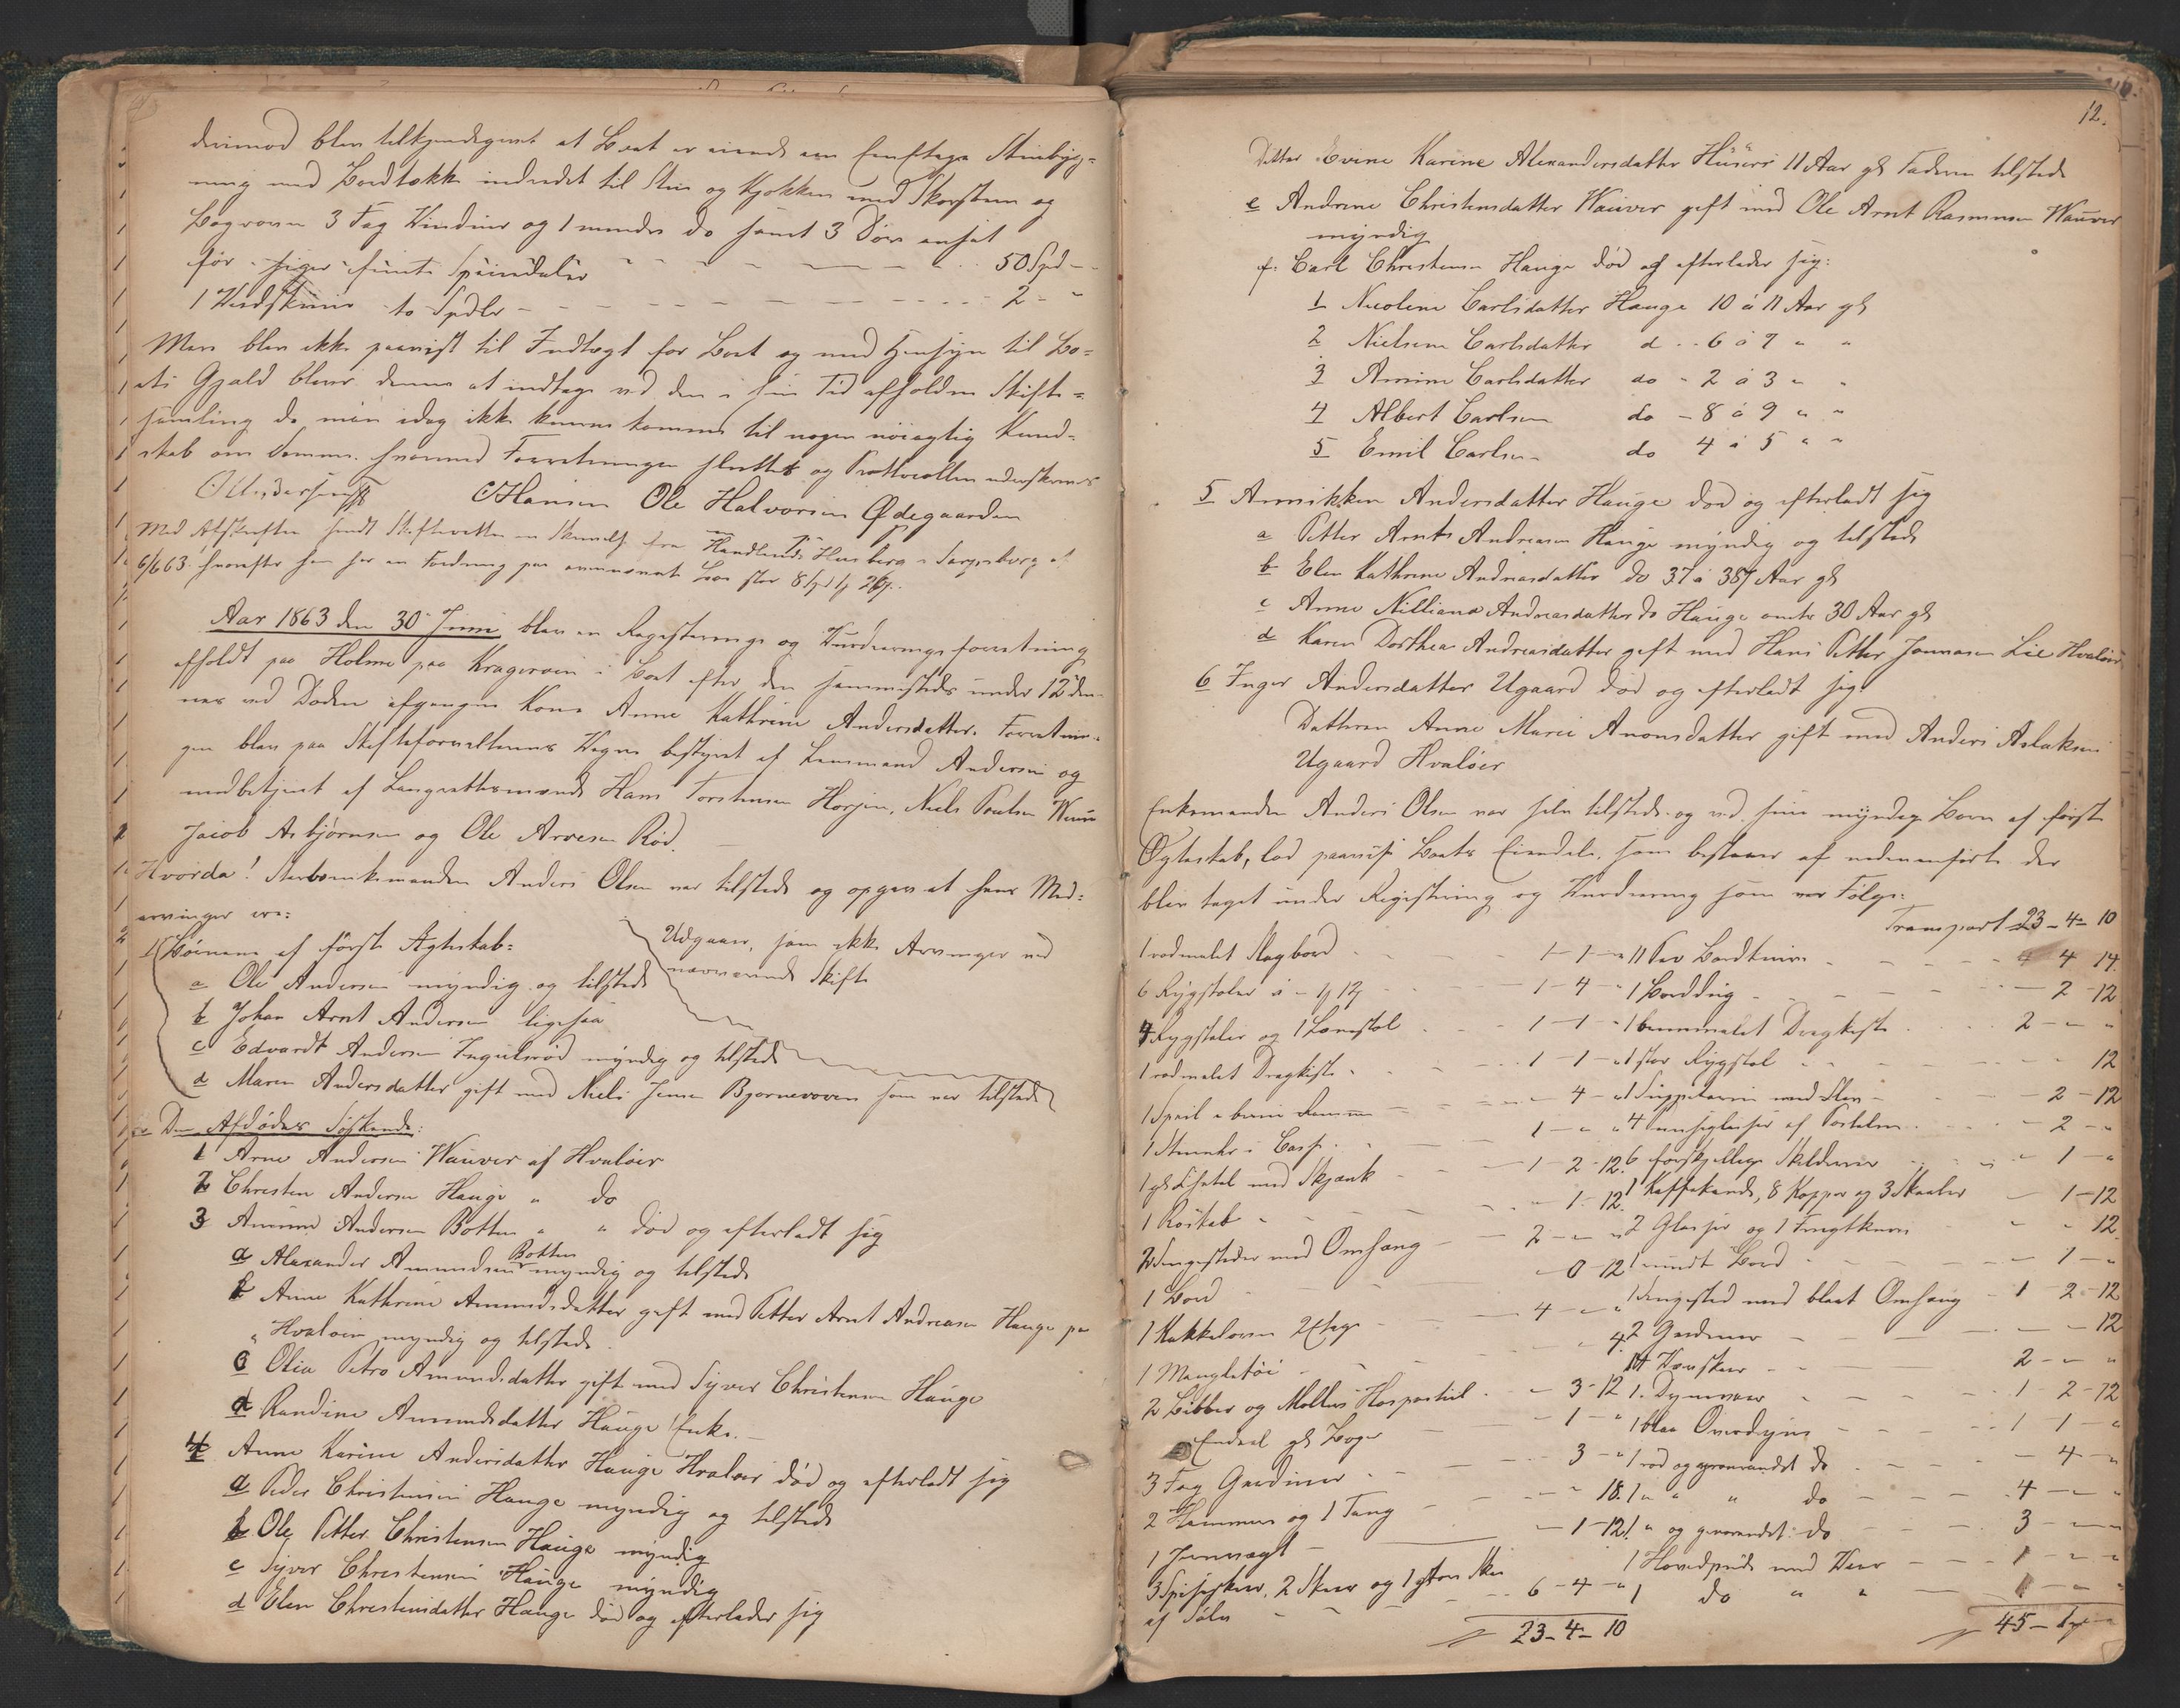 derimod blev tilkjendegivet at Boet er eiende en Eenetages Stuebyg-
ning med Bordtække indredet til Stue og Kjøkken med Skorsteen og
Bagerovn 3 Fag Vinduer og 1 mindre do samt 3 Døre ansat
for siger femti Speciedaler 50 Spd -
1 Vedskuur to Spdlr 2 - "
Mere blev ikke paaviist til Indtægt for Boet og med Hensyn til Bo-
ets Gjæld bliver denne at indtage ved den i sin Tid afholdne Skifte-
samling da man idag ikke kunne komme til nogen nøiagtig Kund-
skab om Samme. hvormed Forretningen sluttet og Protocollen underskrevet
CHansen Ole Halvorsen Ødegaarden
Med Afskriften sendt Skifteretten en Skrivelse fra Handlende Husberg i Sarpsborg af
6/6 63. hvorefter han har en Fordring paa ommeldte Boe stor 8 Spd
Aar 1863 den 30 Juni blev en Registerings og Vurderingsforretning
afholdt paa Holme paa Kragerøen i Boet efter den sammesteds under 12 den-
nes ved Døden afgangne Kone Anne Kathrine Andersdatter. Forretnin-
gen blev paa Skifteforvalterens Vegne bestyret af Lensmand Andersen og
medbetjent af Laugrettesmænd Hans Torstensen Horgen, Niels Poulsen
Jacob Asbjørnsen og Ole Arvesen Rød.
Hvorda! Sterbenkemanden Anders Olsen var tilstede og opgav at hans Med-
arvinger ere:
1 Børnene af første Ægteskab:
Udgaaer, som ikke Arvinger ved
nærværende Skifte
a Ole Andersen myndig og tilstede
b Johan Arnt Andersen ligesaa
c Edvardt Andersen Ingulsrød myndig og tilstede
d Maren Andersdatter gift med Niels Jensen Bjørnevoven som var tilstede
Den Afdødes Søskende:
1 Arne Andersen Wauver af Hvaløer
2 Christen Andersen Hauge " do
3 Amund Andersen Botten " " død og efterladt sig
a Alexander Amundsen Botten myndig og tilstede
b Anne Kathrine Amundsdatter gift med Petter Arnt Andreasen Hauge paa
" Hvaløer myndig og tilstede
c Olia Petra Amundsdatter gift med Syver Christensen Hauge
d Randine Amundsdatter Hauge Enke. -
4 Anne Karine Andersdatter Hauge Hvaløer død og efterladt sig
a Peder Christensen Hauge myndig og tilstede
b Ole Petter Christensen Hauge myndig
c Syver Christensen Hauge myndig
d Elen Christensdatter Hauge død og efterlader sig
12.
Datter Evine Karine Alexandersdatter Husers 11 Aar gl Faderen tilstede
e Andrine Christensdatter Wauver gift med Ole Arnt Rasmusen Wauver
myndig
f. Carl Christensen Hauge død og efterlader sig:
1 Nicoline Carlsdatter Hauge 10 à 11 Aar gl
2 Nielsine Carlsdatter d - 6 à 7 " "
3 Amine Carlsdatter do - 2 à 3 " "
4 Albert Carlsen do - 8 à 9 " "
5 Emil Carlsen do 4 à 5 " "
5 Annikken Andersdatter Hauge død og efterladt sig
a Petter Arnt Andreasen Hauge myndig og tilstede
b Elen Kathrine Andreasdatter do 37 à 38 Aar gl
c Anne Nilliana Andreasdatter do Hauge omtr 30 Aar gl
d Karen Dorthea Andreasdatter gift med Hans Petter Jonnasen Lie Hvaløer
6 Inger Andersdatter Ugaard død og efterladt sig:
Datteren Anne Marie Anonsdatter gift med Anders Aslaksen
Ugaard Hvaløer
Enkemanden Anders Olsen var selv tilstede og ved sine myndige Børn af første
Ægteskab, lod paavise Boets Eiendele, som bestaaer af nedenanførte der
blev taget under Registring og Vurdering som følger:
Transport 23-4-10
1 rødmalet Slagbord 1-1-"
6 Rygstoler 1-4-"
4 Rygstoler og 1 Lænestol 1-1-"
1 rødmalet Dragkiste 1-1-"
1 Speil i bruun Ramme 4-"
1 Stueuhr i Casse 1-"-"
1 gl Chatol med Skjænk 1-2-12
1 Roskab 1-12
2 Sengesteder med Omhæng 2-"-"
1 Bord 0-12
1 Kakkelovn 2 Etage 4-"-"
1 Mangletøi 4
2 Bibler og Møllers Huspostil 3-12
Endeel gl Bøger 1-"
3 Fag Gardiner 3-"
2 Hammere og 1 Tang 18.
1 Jernvægt 1-12
3 Spiseskeer, 2 Skeer og 1 stor Skee
af Sølv 6-4-"
23-4-10
11 Par Bordknive 4 14
1 Borddug 2-12
1 bruunmalet Dragkiste 2-"-"
1 stor Rygstol 12
1 Suppeterin med Skee 2-12
4 af Porselen 2-"
6 forskjellige Skilderier 1-"
1 Kaffekande, 8 Kopper og 3 Skaaler 1-12
2 Glasser og 1 Frugtkurv 12
1 rundt Bord 1-"
1 Sengested med blaat Omhæng 1-2-12
2 Gardiner 12
2-"-"
1 Dynevaar 1-2-12
1 blaa Overdyne 1-1-"
1 rød og grønrandet do 4-"
1 " " " do 4-"-"
1 " og do 3-"-"
1 Hovedpude med Vaar 1-"-"
1 do " " 1-"-"
45-